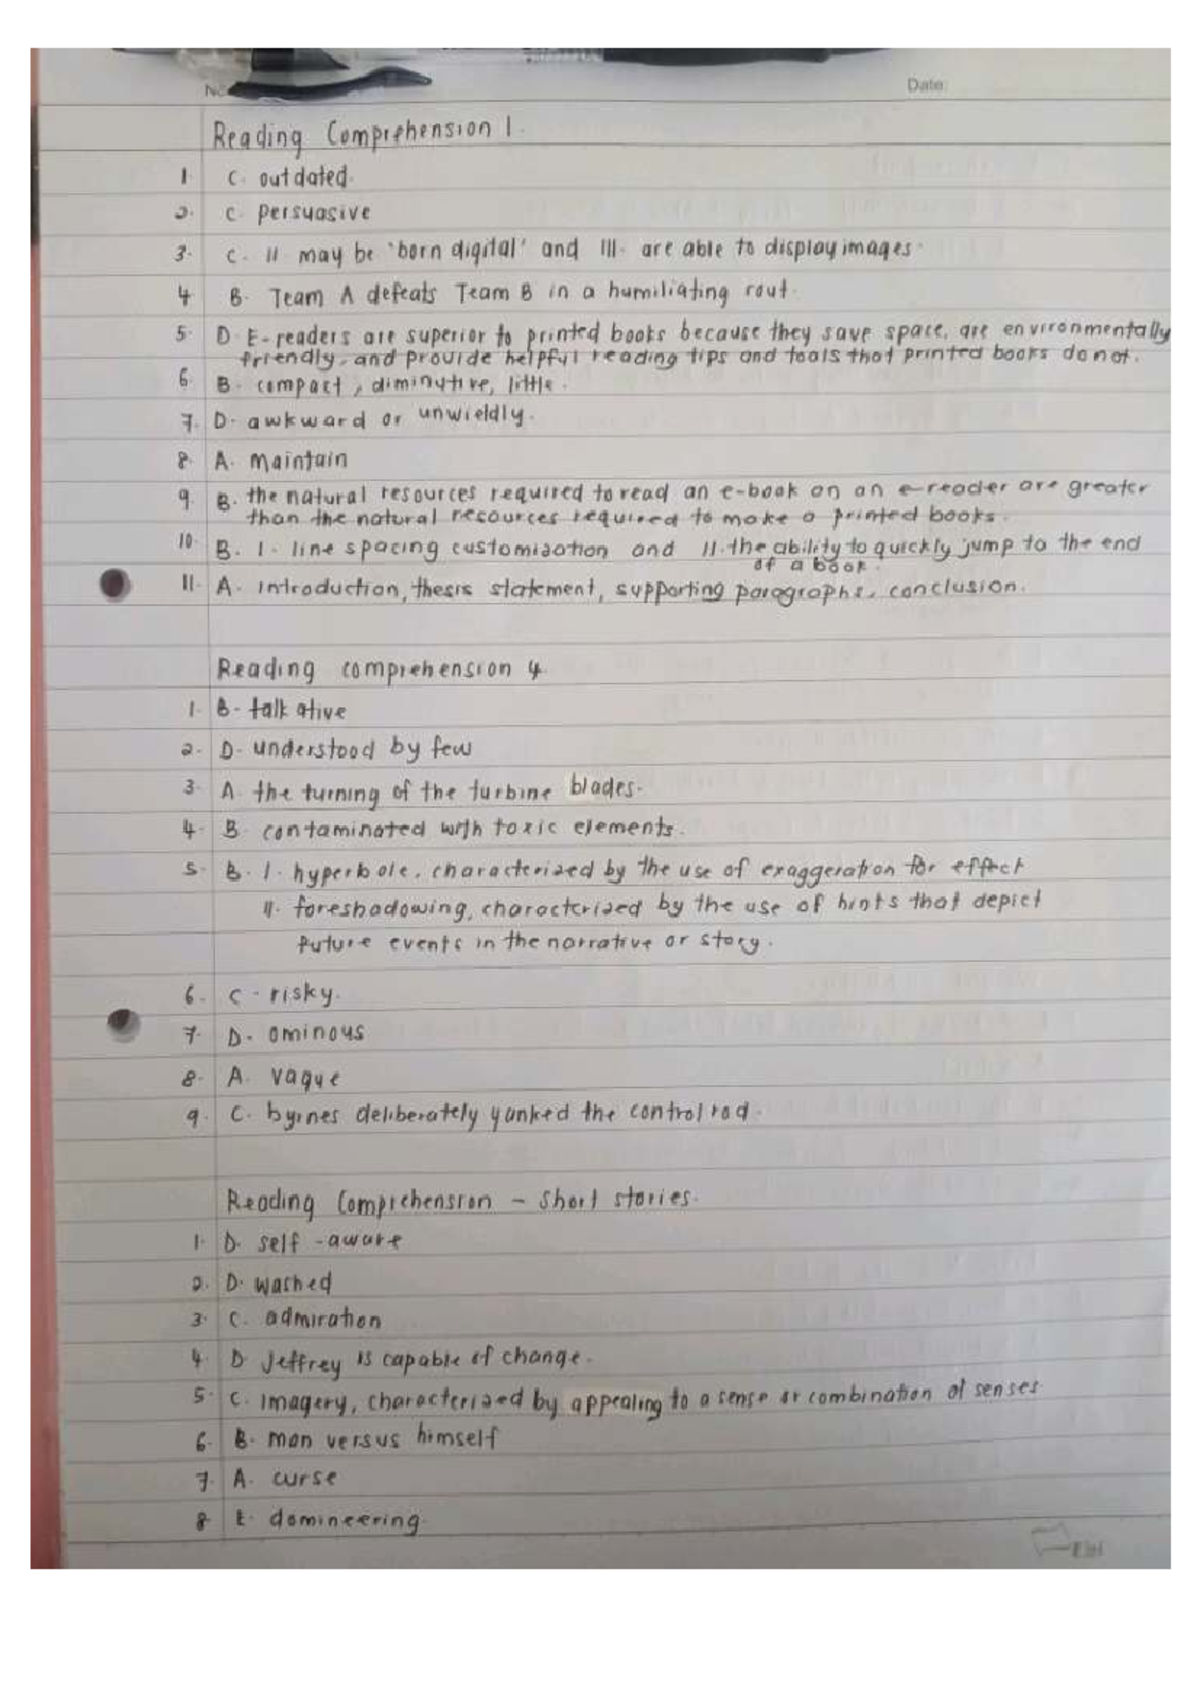 No
Date:
Reading Comprehension 1.
1. C. outdated.
2. C. persuasive
3. C. II may be 'born digital' and III. are able to display images.
4. B. Team A defeats Team B in a humiliating rout.
5. D. E-readers are superior to printed books because they save space, are environmentally
friendly, and provide helpful reading tips and tools that printed books do not.
6. B. compact, diminutive, little.
7. D. awkward or unwieldly.
8. A. maintain
9. B. the natural resources required to read an e-book on an e-reader are greater
than the natural resources required to make a printed books.
10. B. I. line spacing customization and II. the ability to quickly jump to the end
of a book.
11. A. Introduction, thesis statement, supporting paragraphs, conclusion.
Reading comprehension 4.
1. B. talkative
2. D. understood by few
3. A. the turning of the turbine blades.
4. B. contaminated with toxic elements.
5. B. I. hyperbole, characterized by the use of exaggeration for effect
II. foreshadowing, characterized by the use of hints that depict
future events in the narrative or story.
6. C - risky.
7. D. ominous
8. A. vague
9. C. byrnes deliberately yanked the control rod.
Reading Comprehension - short stories.
1. D. self-aware
2. D. washed
3. C. admiration
4. D. Jeffrey is capable of change.
5. C. Imagery, characterized by appealing to a sense or combination of senses
6. B. man versus himself
7. A. curse
8. E. domineering.